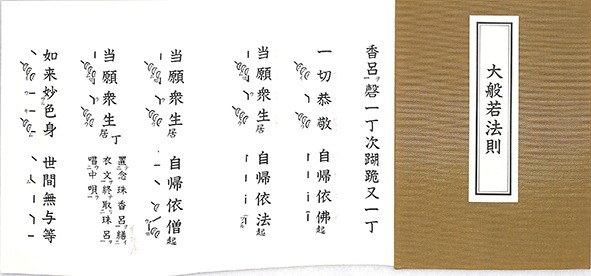 大般若法則
香呂ヲ磬一丁次跪又一丁
一切恭敬 自帰依佛起
当願衆生居 自帰依法起
当願衆生居 自帰依僧起
当願衆生居丁
置念珠香呂繕
衣文終取珠呂
唱中唄
如来妙色身 世間無与等